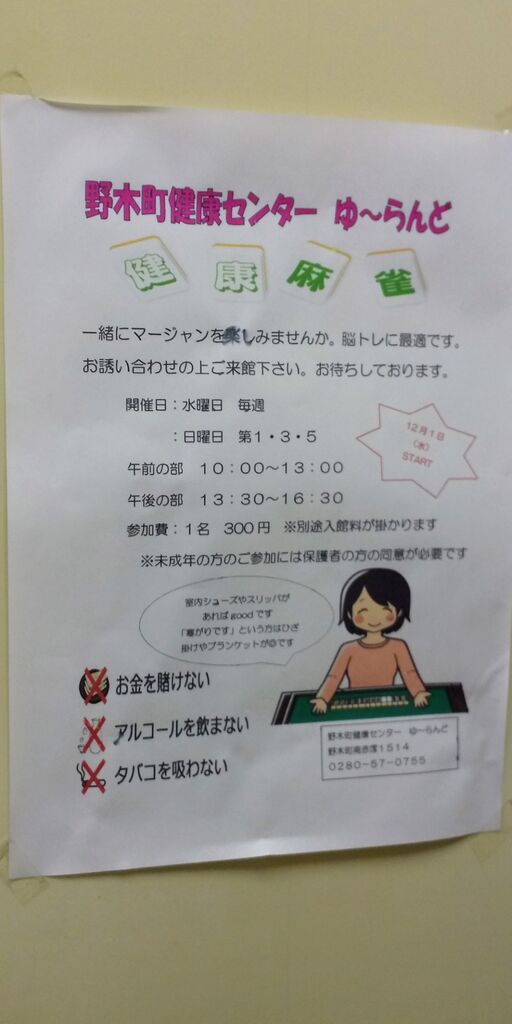 野木町健康センター ゆ～らんど
健康麻雀
一緒にマージャンを楽しみませんか。脳トレに最適です。
お誘い合わせの上ご来館下さい。お待ちしております。
開催日：水曜日 毎週
：日曜日 第１・３・５
午前の部 １０：００～１３：００
午後の部 １３：３０～１６：３０
参加費：１名 ３００円 ※別途入館料が掛かります
※未成年の方のご参加には保護者の方の同意が必要です
１２月１日
（水）
START
室内シューズやスリッパが
あればgoodです
「寒がりです」という方はひざ
掛けやブランケットが◎です
お金を賭けない
アルコールを飲まない
タバコを吸わない
野木町健康センター ゆ～らんど
野木町南赤塚１５１４
０２８０－５７－０７５５